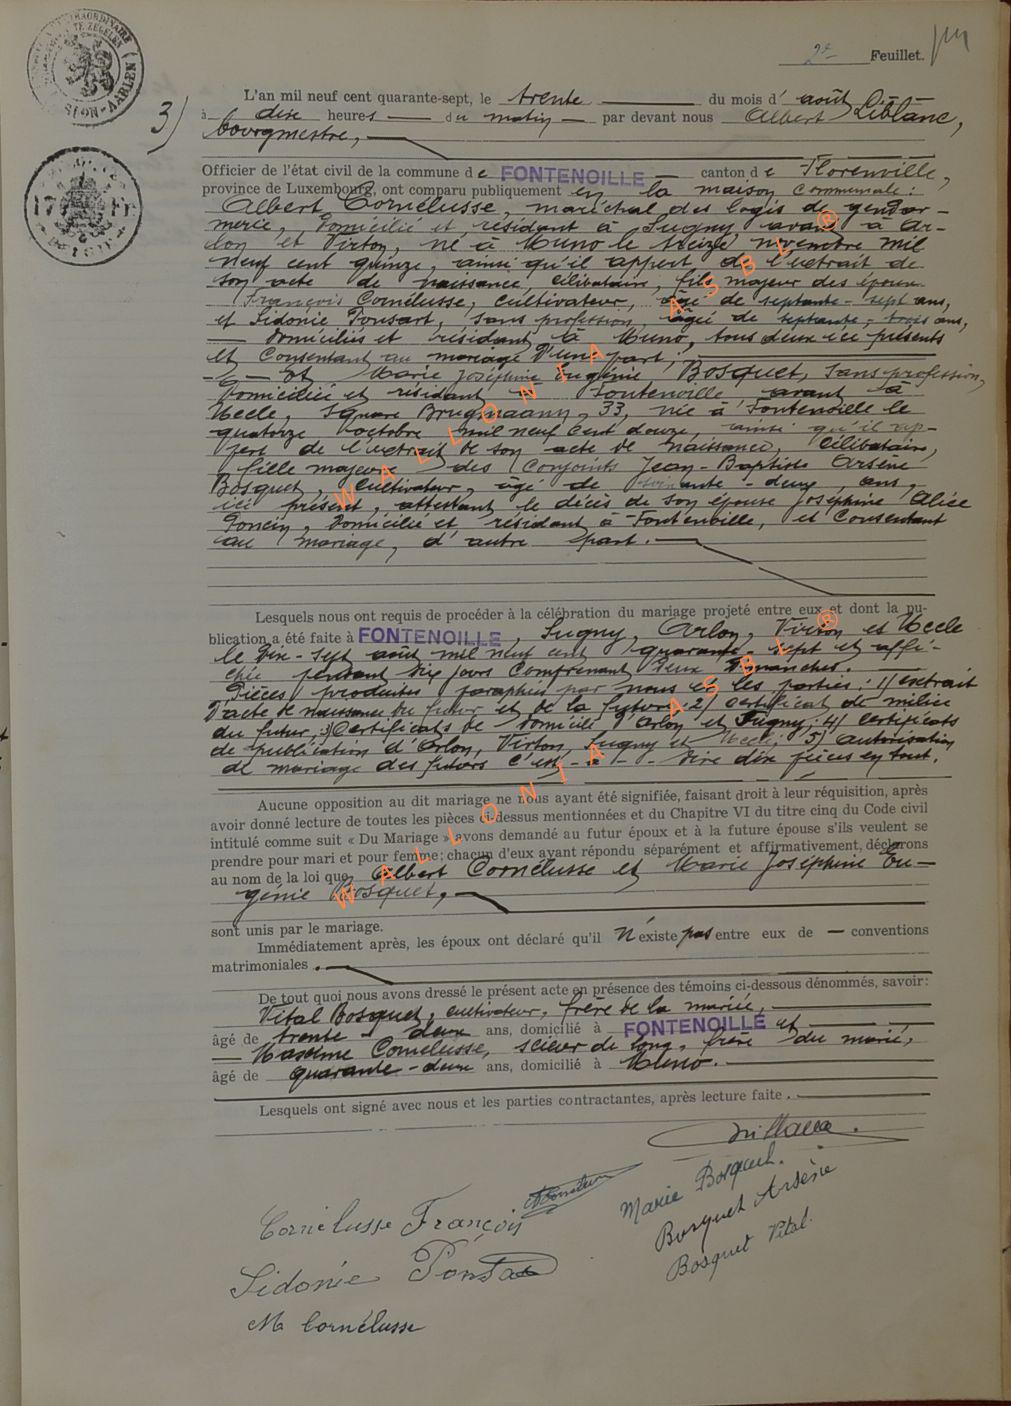 2e Feuillet.
3)
L'an mil neuf cent quarante-sept, le trente du mois d' août
à dix heures du matin par devant nous Albert Liblanc,
bourgmestre,
Officier de l'état civil de la commune de FONTENOILLE canton de Florenville,
province de Luxembourg, ont comparu publiquement en la maison communale :
Albert Cornélusse, maréchal des logis de gendar-
merie, domicilié et résidant à Sugny avant à Ar-
lon et Virton, né à Muno le treize novembre mil
neuf cent quinze, ainsi qu'il appert de l'extrait de
son acte de naissance, célibataire, fils majeur des époux
François Cornélusse, cultivateur, âgé de septante-sept ans,
et Sidonie Ponsart, sans profession, âgée de septante-trois ans,
domiciliés et résidant à Muno, tous deux ici présents
et consentant au mariage d'une part ;
Et Marie Joséphine Eugénie Bosquet, sans profession,
domiciliée et résidant à Fontenoille avant à
Uccle, square Brugmann, 33, née à Fontenoille le
quatorze octobre mil neuf cent douze, ainsi qu'il ap-
pert de l'extrait de son acte de naissance, célibataire,
fille majeure des conjoints Jean-Baptiste Arsène
Bosquet, cultivateur, âgé de -deux ans,
ici présent, attestant le décès de son épouse Joséphine Alice
Poncin, domicilié et résidant à Fontenoille, et consentant
au mariage, d'autre part.
Lesquels nous ont requis de procéder à la célébration du mariage projeté entre eux et dont la pu-
blication a été faite à FONTENOILLE, Sugny, Arlon, Virton et Uccle
le dix-sept août mil neuf cent quarante-sept et affi-
chée pendant dix jours comprenant deux dimanches.
Pièces produites paraphées par nous et les parties : 1) extrait
d'acte de naissance du futur et de la future ; 2) certificat de milice
du futur ; 3) certificats de domicile d'Arlon et Sugny ; 4) certificats
de publication d'Arlon, Virton, Sugny et Uccle ; 5) autorisation
de mariage des futurs c'est-à-dire dix pièces en tout.
Aucune opposition au dit mariage ne nous ayant été signifiée, faisant droit à leur réquisition, après
avoir donné lecture de toutes les pièces ci-dessus mentionnées et du Chapitre VI du titre cinq du Code civil
intitulé comme suit « Du Mariage » avons demandé au futur époux et à la future épouse s'ils veulent se
prendre pour mari et pour femme; chacun d'eux ayant répondu séparément et affirmativement, déclarons
au nom de la loi que Albert Cornélusse et Marie Joséphine Eu-
génie Bosquet,
sont unis par le mariage.
Immédiatement après, les époux ont déclaré qu'il n'existe pas entre eux de — conventions
matrimoniales.
De tout quoi nous avons dressé le présent acte en présence des témoins ci-dessous dénommés, savoir :
Vital Bosquet, cultivateur, frère de la mariée,
âgé de trente-deux ans, domicilié à FONTENOILLE et
Cornélusse, scieur de long, frère du marié,
âgé de quarante-deux ans, domicilié à Muno.
Lesquels ont signé avec nous et les parties contractantes, après lecture faite.
Marie Bosquet.
Cornélusse François
Bosquet Arsène
Sidonie Ponsart
Bosquet Vital.
M Cornélusse
WALLONIA ASBL®
WALLONIA ASBL®